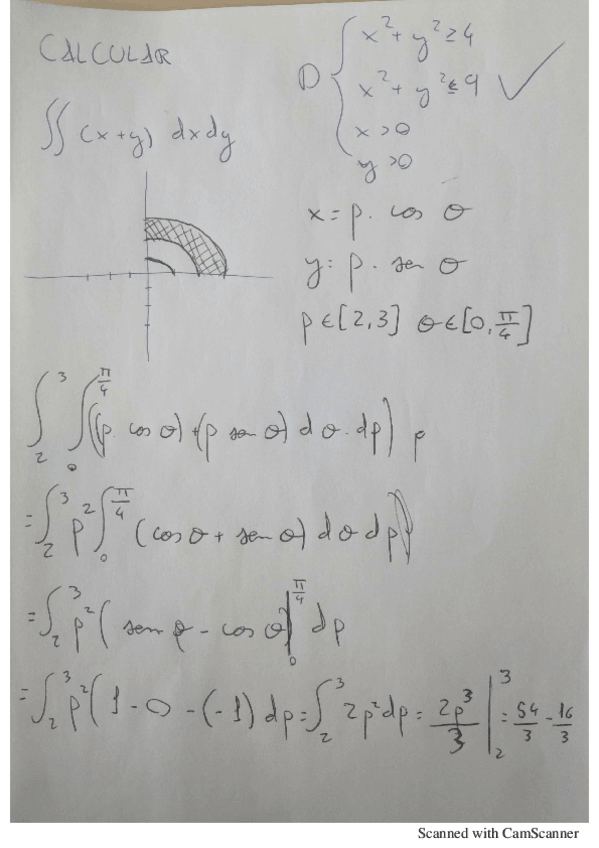 CALCULAR
∬ (x+y) dxdy
D { x²+y²≥4
x²+y²≤9
x>0
y>0
x = ρ. cos θ
y: ρ. sen θ
ρ∈[2,3] θ∈[0,π/4]
∫₂³ ∫₀^(π/4) ((ρ. cos θ)+(ρ sen θ) dθ.dρ) ρ
=∫₂³ ρ² ∫₀^(π/4) (cos θ + sen θ) dθ dρ)
=∫₂³ ρ² ( sen θ - cos θ)|₀^(π/4) dρ
=∫₂³ ρ² (1 - 0 - (-1) dρ = ∫₂³ 2ρ² dρ = 2ρ³/3 |₂³ = 54/3 - 16/3
Scanned with CamScanner